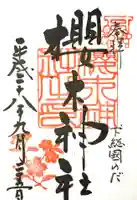 奉拝
下総国のだ
櫻木神社
平成二十八年九月二十五日